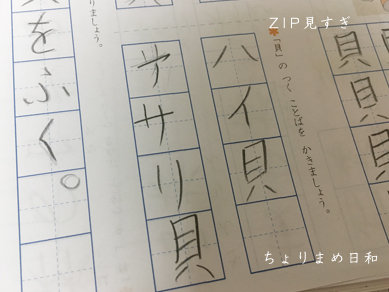 ＺＩＰ見すぎ
貝貝貝
「貝」の つく ことばを かきましょう。
ハイ貝
アサリ貝
りましょう。
をふく。
ちょりまめ日和